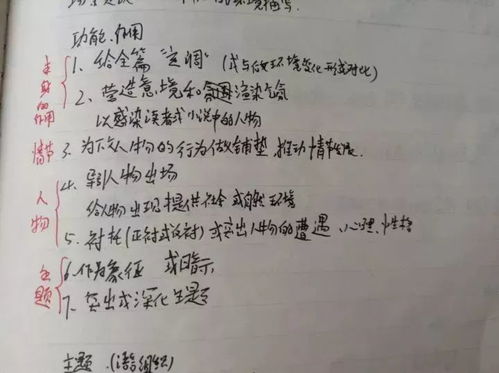 环境描写.
功能、作用
1、给全篇"定调"(或与做环境变化形成对比)
2、营造意境和渲染气氛
以感染读者或小说中的人物
3、为下文人物的行为做铺垫,推动情节发展.
4、引人物出场
给人物出现提供社会或自然环境
5、衬托(正衬或反衬)或突出人物的遭遇、心理、性格
6、作为象征 或暗示,
7、突出或深化主题
自身的作用
情节
人物
主题
主题.(语言组织)